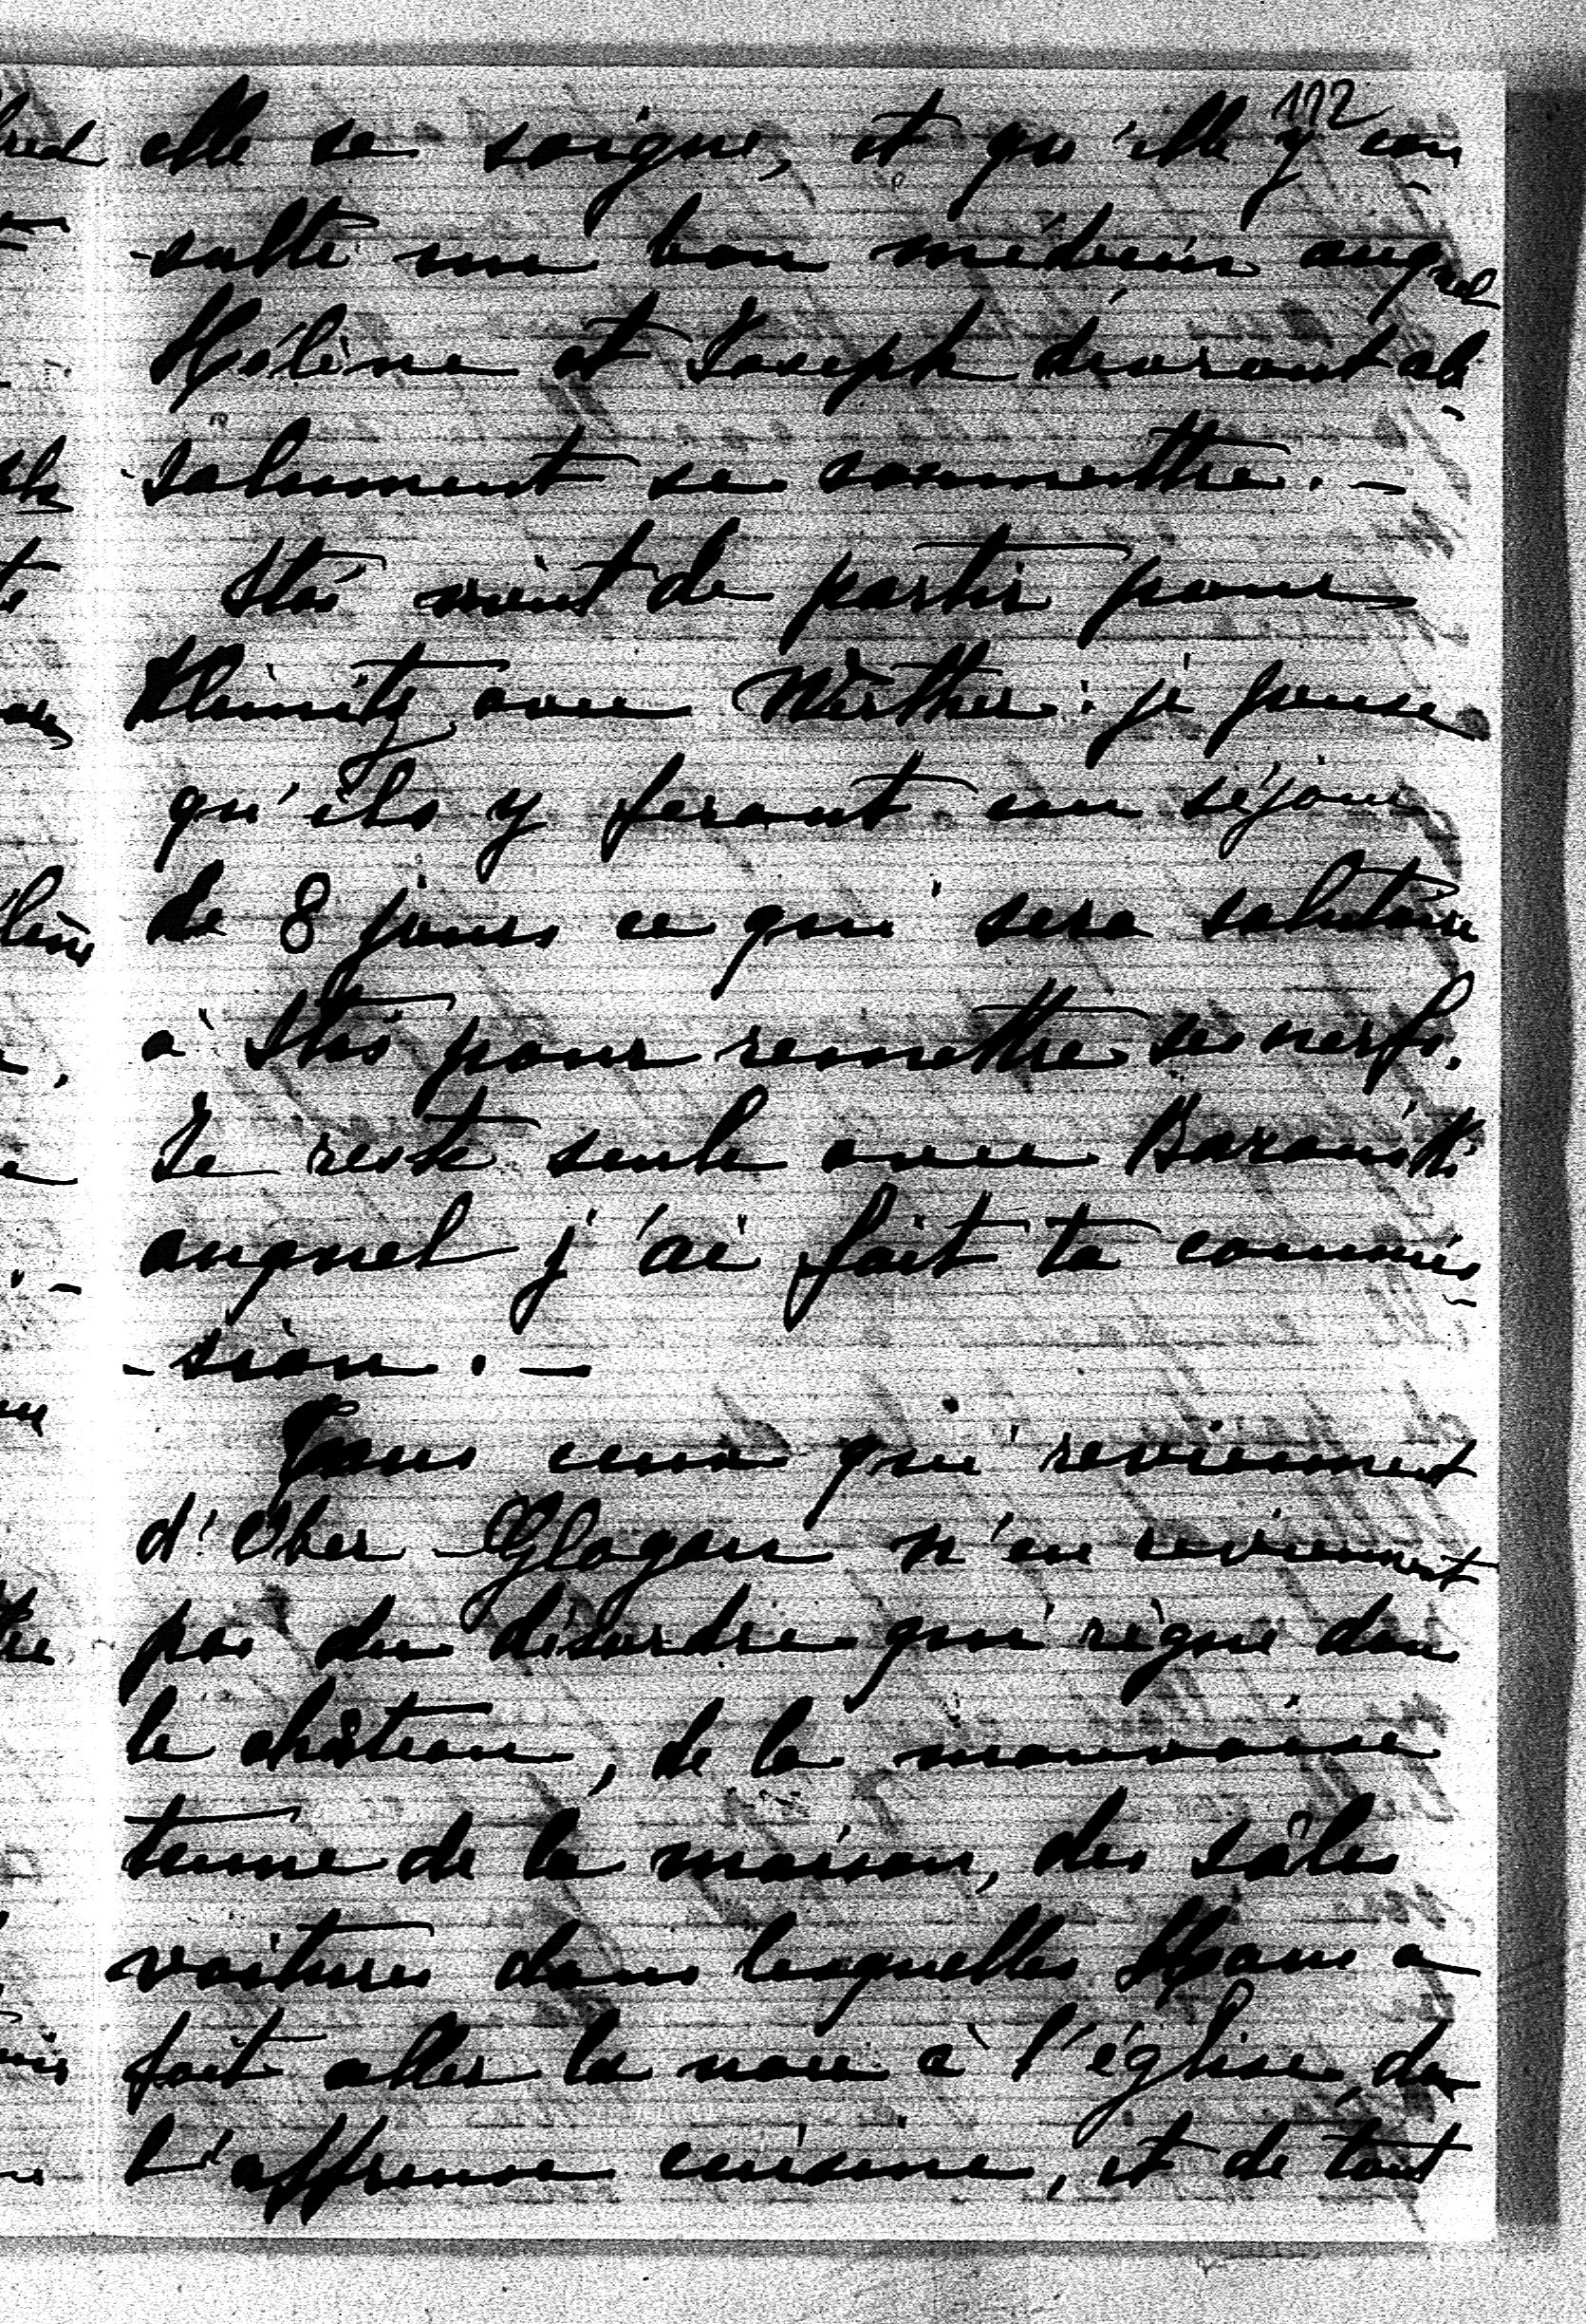 112
elle se soigne, et qu'elle y con
-sulte un bon médecin auquel
Hélène et Joseph devront ab
-solument se soumettre. -
Stás vient de partir pour
Kleinitz avec Werther: je pense
qu'ils y feront un séjour
de 8 jours ce qui sera salutaire
à Stás pour remettre ses nerfs.
Je reste seule avec
auquel j'ai fait ta commis
-sion. -
Tous ceux qui reviennent
d'Ober-Glogau n'en reviennent
pas du désordre qui règne dans
le château, de la mauvaise
tenue de la maison, des sâles
voitures dans lesquelles Hans a
fait aller la noce à l'église, de
l'affreuse cuisine, et de tout